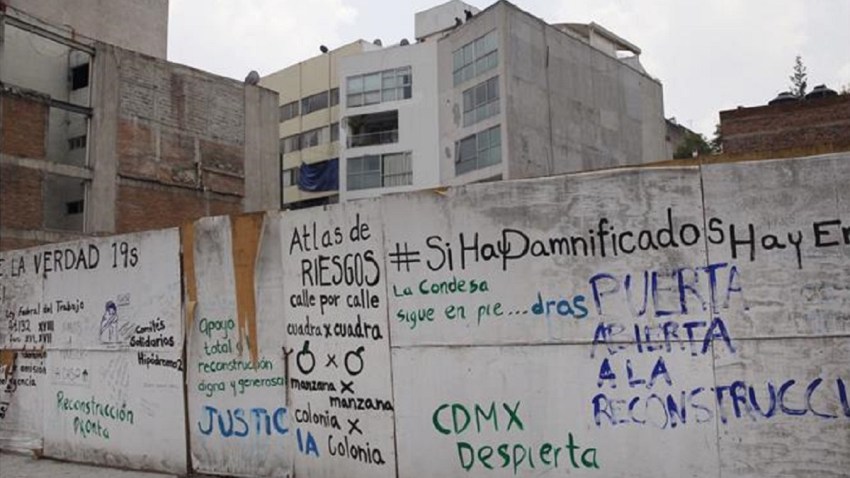 LA VERDAD 19s
Ley Federal del Trabajo
Art. 132 XVIII
Comités
Solidarios
Hipódromo 2
Reconstrucción
Pronta
Apoyo
total y
reconstrucción
digna y generosa
JUSTIC
IA
Atlas de
RIESGOS
calle por calle
cuadra x cuadra
x
manzana x
manzana
colonia x
Colonia
#Si Hay Damnificados Hay Em
La Condesa
sigue en pie...dras
PUERTA
ABIERTA
A LA
RECONSTRUCCI
CDMX
Despierta